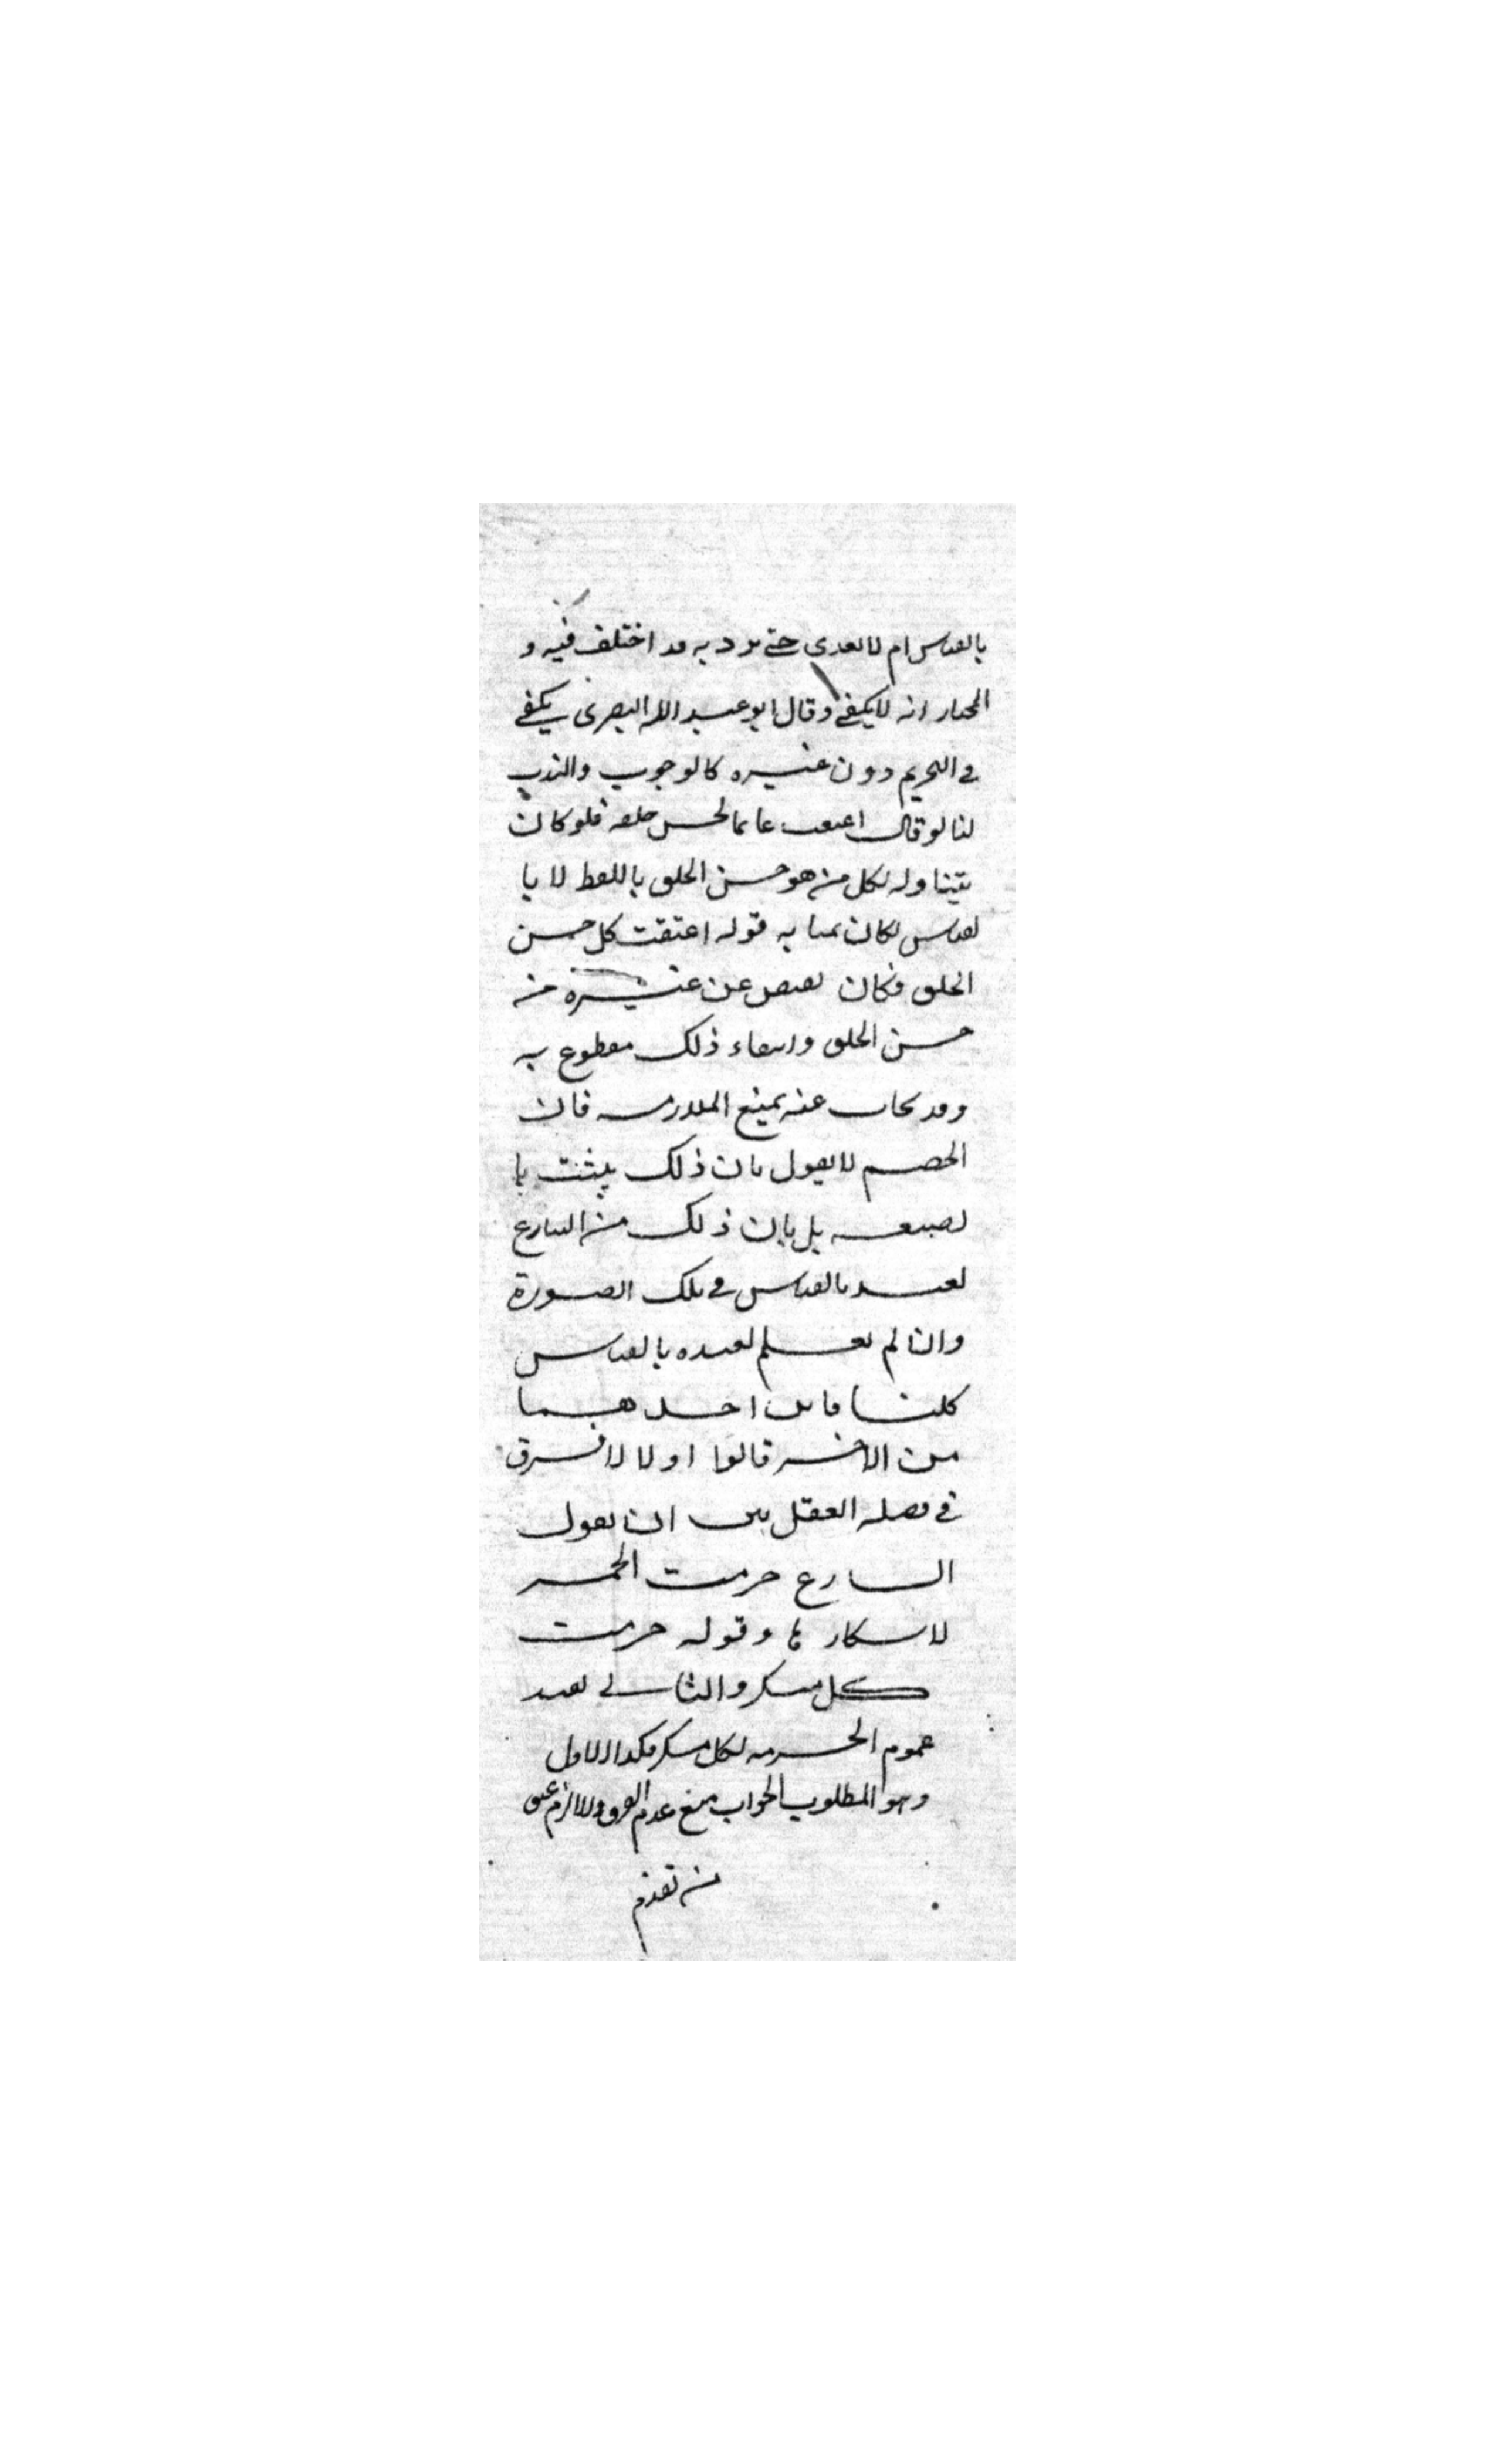 بالقياس ام لا تعدى حتى يرد به قد اختلف فيه و
المختار انه لا يكفى وقال ابو عبد الله البصرى يكفى
فى التحريم دون غيره كالوجوب والندب
لنا لو قال اعتقت غانما لحسن خلقه فلو كان
يتناوله لكل من هو حسن الخلق باللفظ لا با
لقياس لكان بمثابه قوله اعتقت كل حسن
الخلق فكان يقتضى عن غيره من
حسن الخلق وانتفاء ذلك مقطوع به
وقد يجاب عنه بمنع الملازمه فان
الخصم لا يقول بان ذلك يثبت با
لصيغه بل بان ذلك من الشارع
تعبد بالقياس فى تلك الصورة
وان لم نعلم تعبده بالقياس
كليا فاين احدهما
من الاخر قالوا اولا لا فرق
فى قضيه العقل بين ان يقول
الشارع حرمت الخمر
لاسكارها وقوله حرمت
كل مسكر والثانى يفيد
عموم الحرمه لكل مسكر فكذا الاول
وهو المطلوب الجواب منع عدم الفرق والا لزم عتق
من تقدم